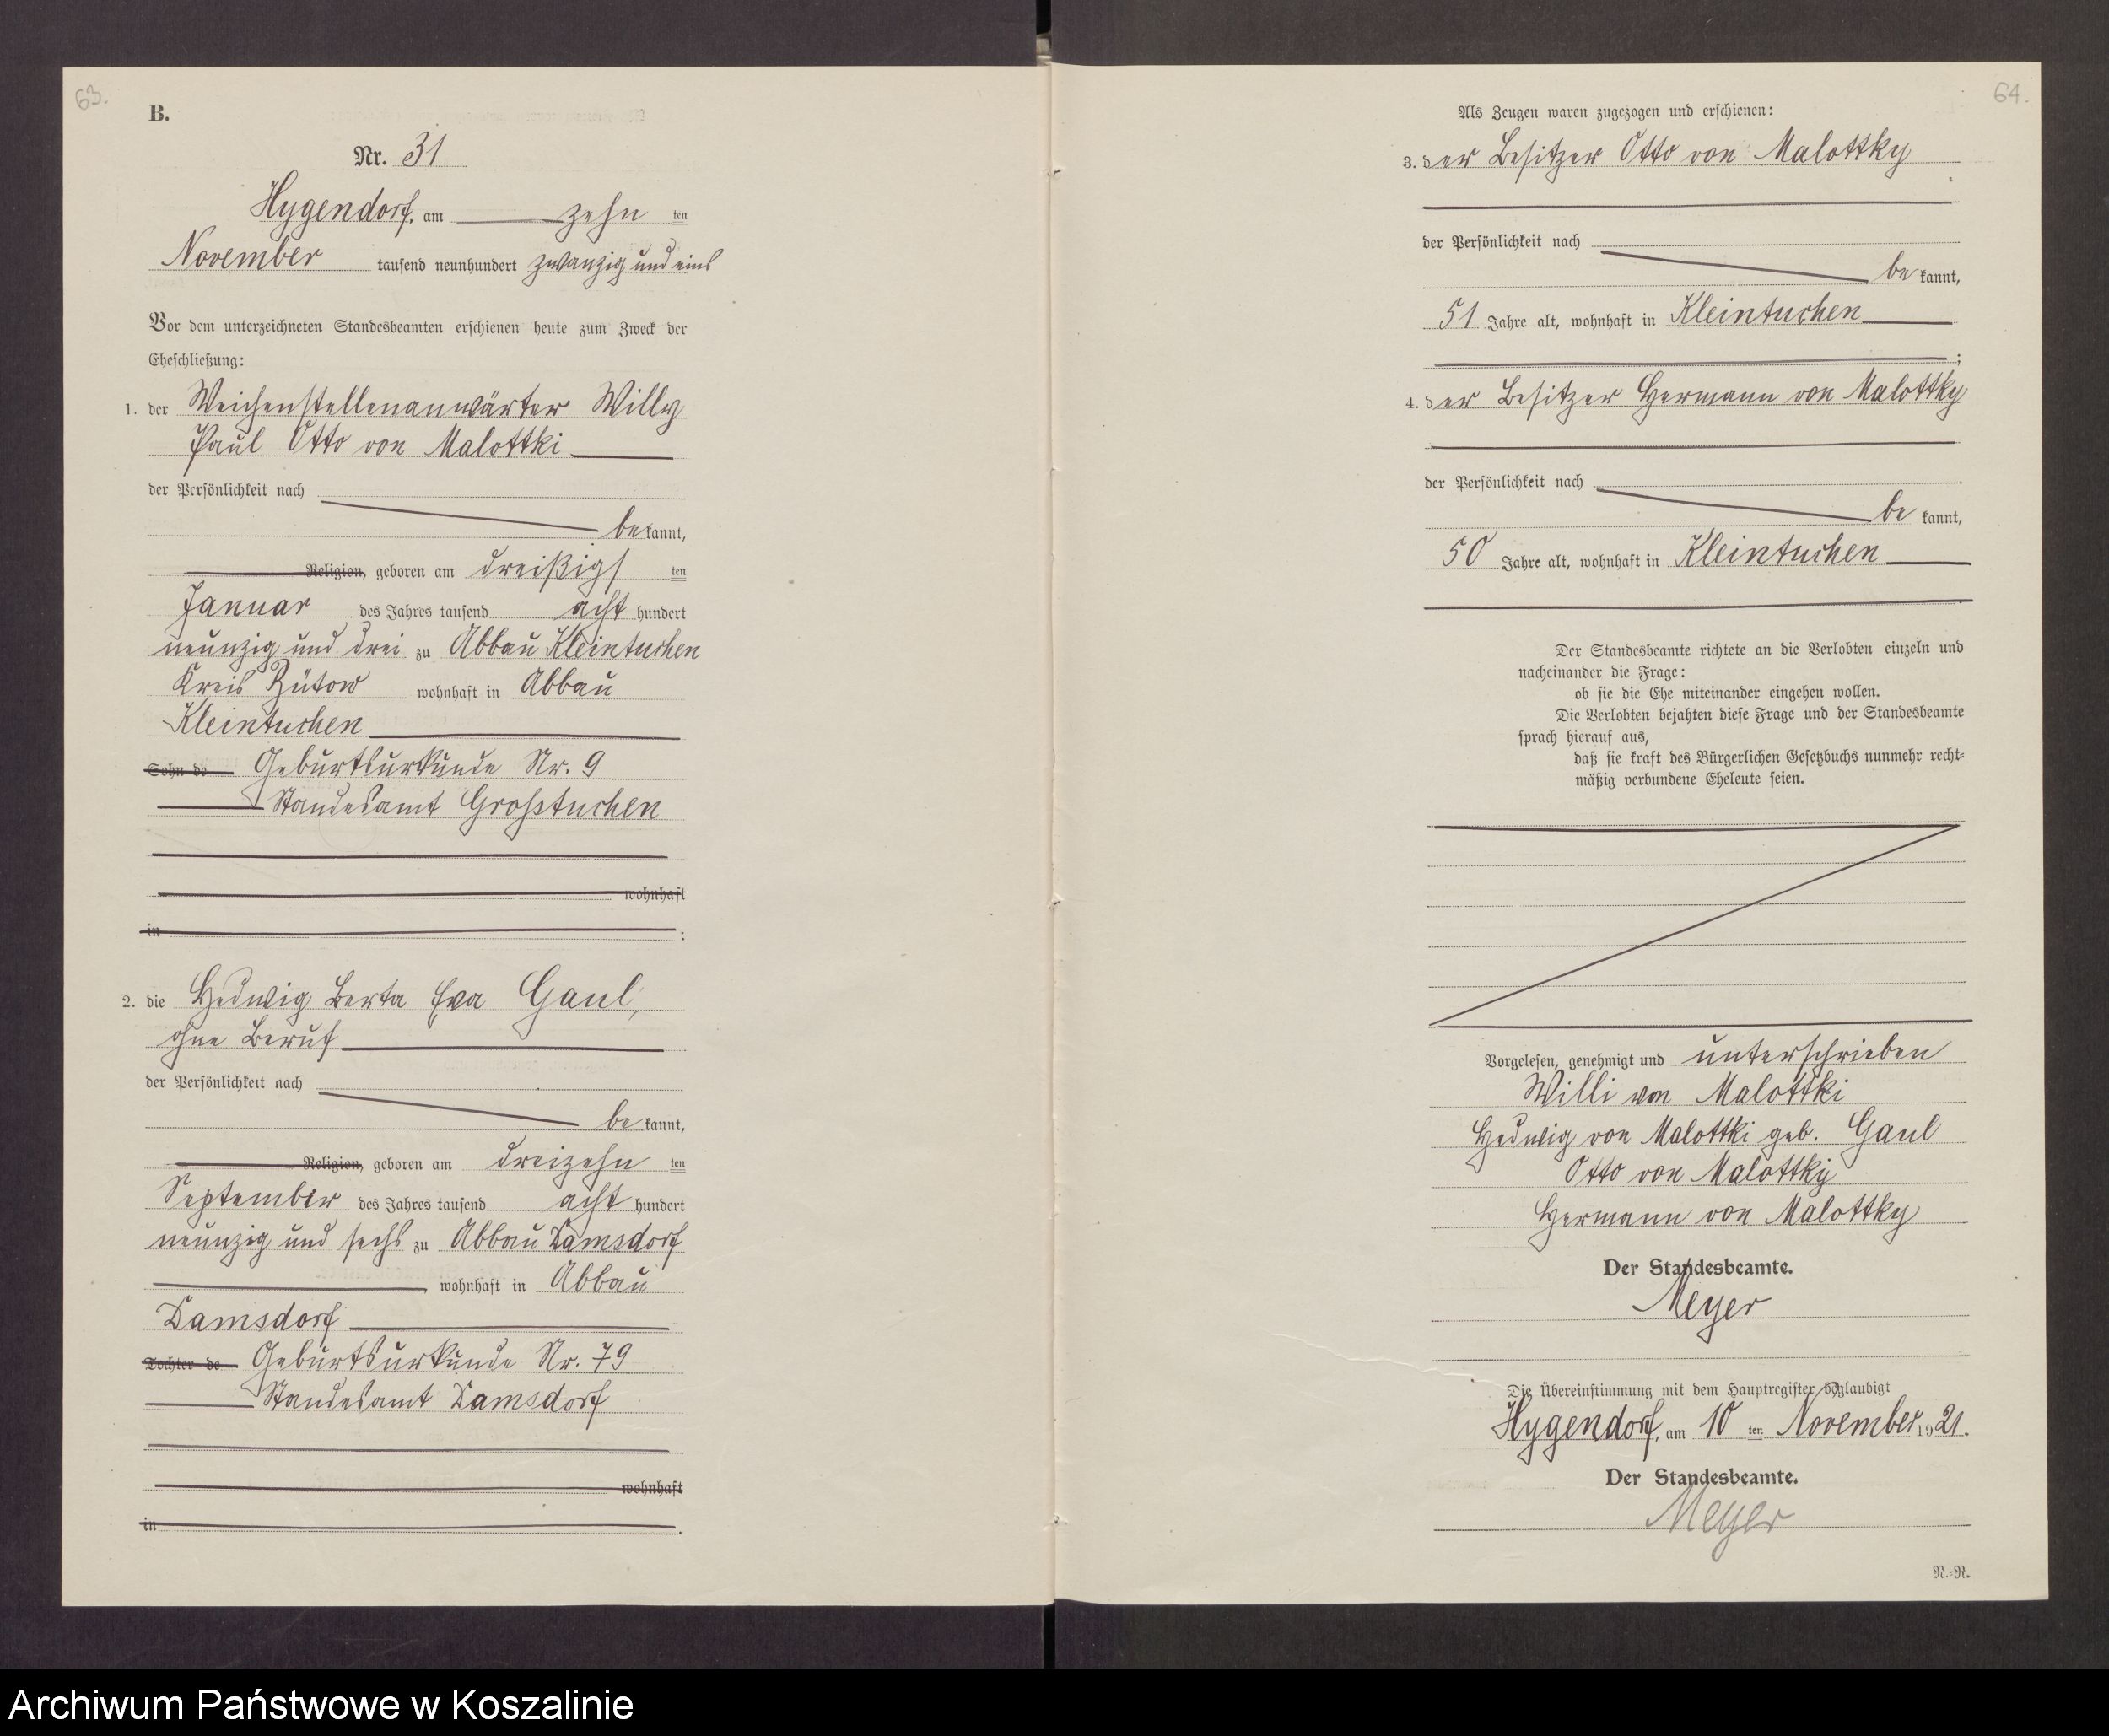 63.
B.
Nr. 31
Hygendorf, am zehn ten
November tausend neunhundert zwanzig und eins
Vor dem unterzeichneten Standesbeamten erschienen heute zum Zweck der
Eheschließung:
1. der Weichenstellenanwärter Willy
Paul Otto von Malottki
der Persönlichkeit nach
be kannt,
Religion, geboren am dreißigs ten
Januar des Jahres tausend acht hundert
neunzig und drei zu Abbau Kleintuchen
Kreis Bütow wohnhaft in Abbau
Kleintuchen
Sohn de Geburtsurkunde Nr. 9
Standesamt Grosstuchen
wohnhaft
in :
2. die Hedwig Berta Eva Gaul,
ohne Beruf
der Persönlichkeit nach
be kannt,
Religion, geboren am dreizehn ten
September des Jahres tausend acht hundert
neunzig und sechs zu Abbau Damsdorf
, wohnhaft in Abbau
Damsdorf
Tochter de Geburtsurkunde Nr. 79
Standesamt Damsdorf
wohnhaft
in .
64.
Als Zeugen waren zugezogen und erschienen:
3. der Besitzer Otto von Malottky
der Persönlichkeit nach
be kannt,
51 Jahre alt, wohnhaft in Kleintuchen
;
4. der Besitzer Hermann von Malottky
der Persönlichkeit nach
be kannt,
50 Jahre alt, wohnhaft in Kleintuchen
Der Standesbeamte richtete an die Verlobten einzeln und
nacheinander die Frage:
ob sie die Ehe miteinander eingehen wollen.
Die Verlobten bejahten diese Frage und der Standesbeamte
sprach hierauf aus,
daß sie kraft des Bürgerlichen Gesetzbuchs nunmehr recht-
mäßig verbundene Eheleute seien.
Vorgelesen, genehmigt und unterschrieben
Willi von Malottki
Hedwig von Malottki geb. Gaul
Otto von Malottky
Hermann von Malottky
Der Standesbeamte.
Meyer
Die Übereinstimmung mit dem Hauptregister beglaubigt
Hygendorf, am 10 ten November 1921.
Der Standesbeamte.
Meyer
N.-R.
Archiwum Państwowe w Koszalinie